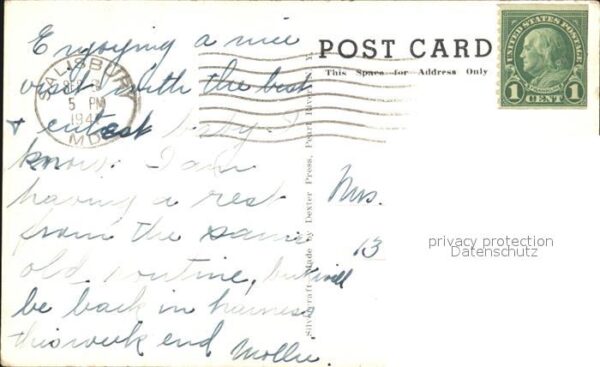 Enjoying a nice
visit with the best
& cutest baby I
know. I am
having a rest
from the same
old routine, but will
be back in harness
this week end Mollie.
SALISBURY
5 PM
194
MD
POST CARD
This Space for Address Only
UNITED STATES POSTAGE
1 CENT 1
Silvercraft Made by Dexter Press, Pearl River, N. Y.
Mrs.
13
privacy protection
Datenschutz